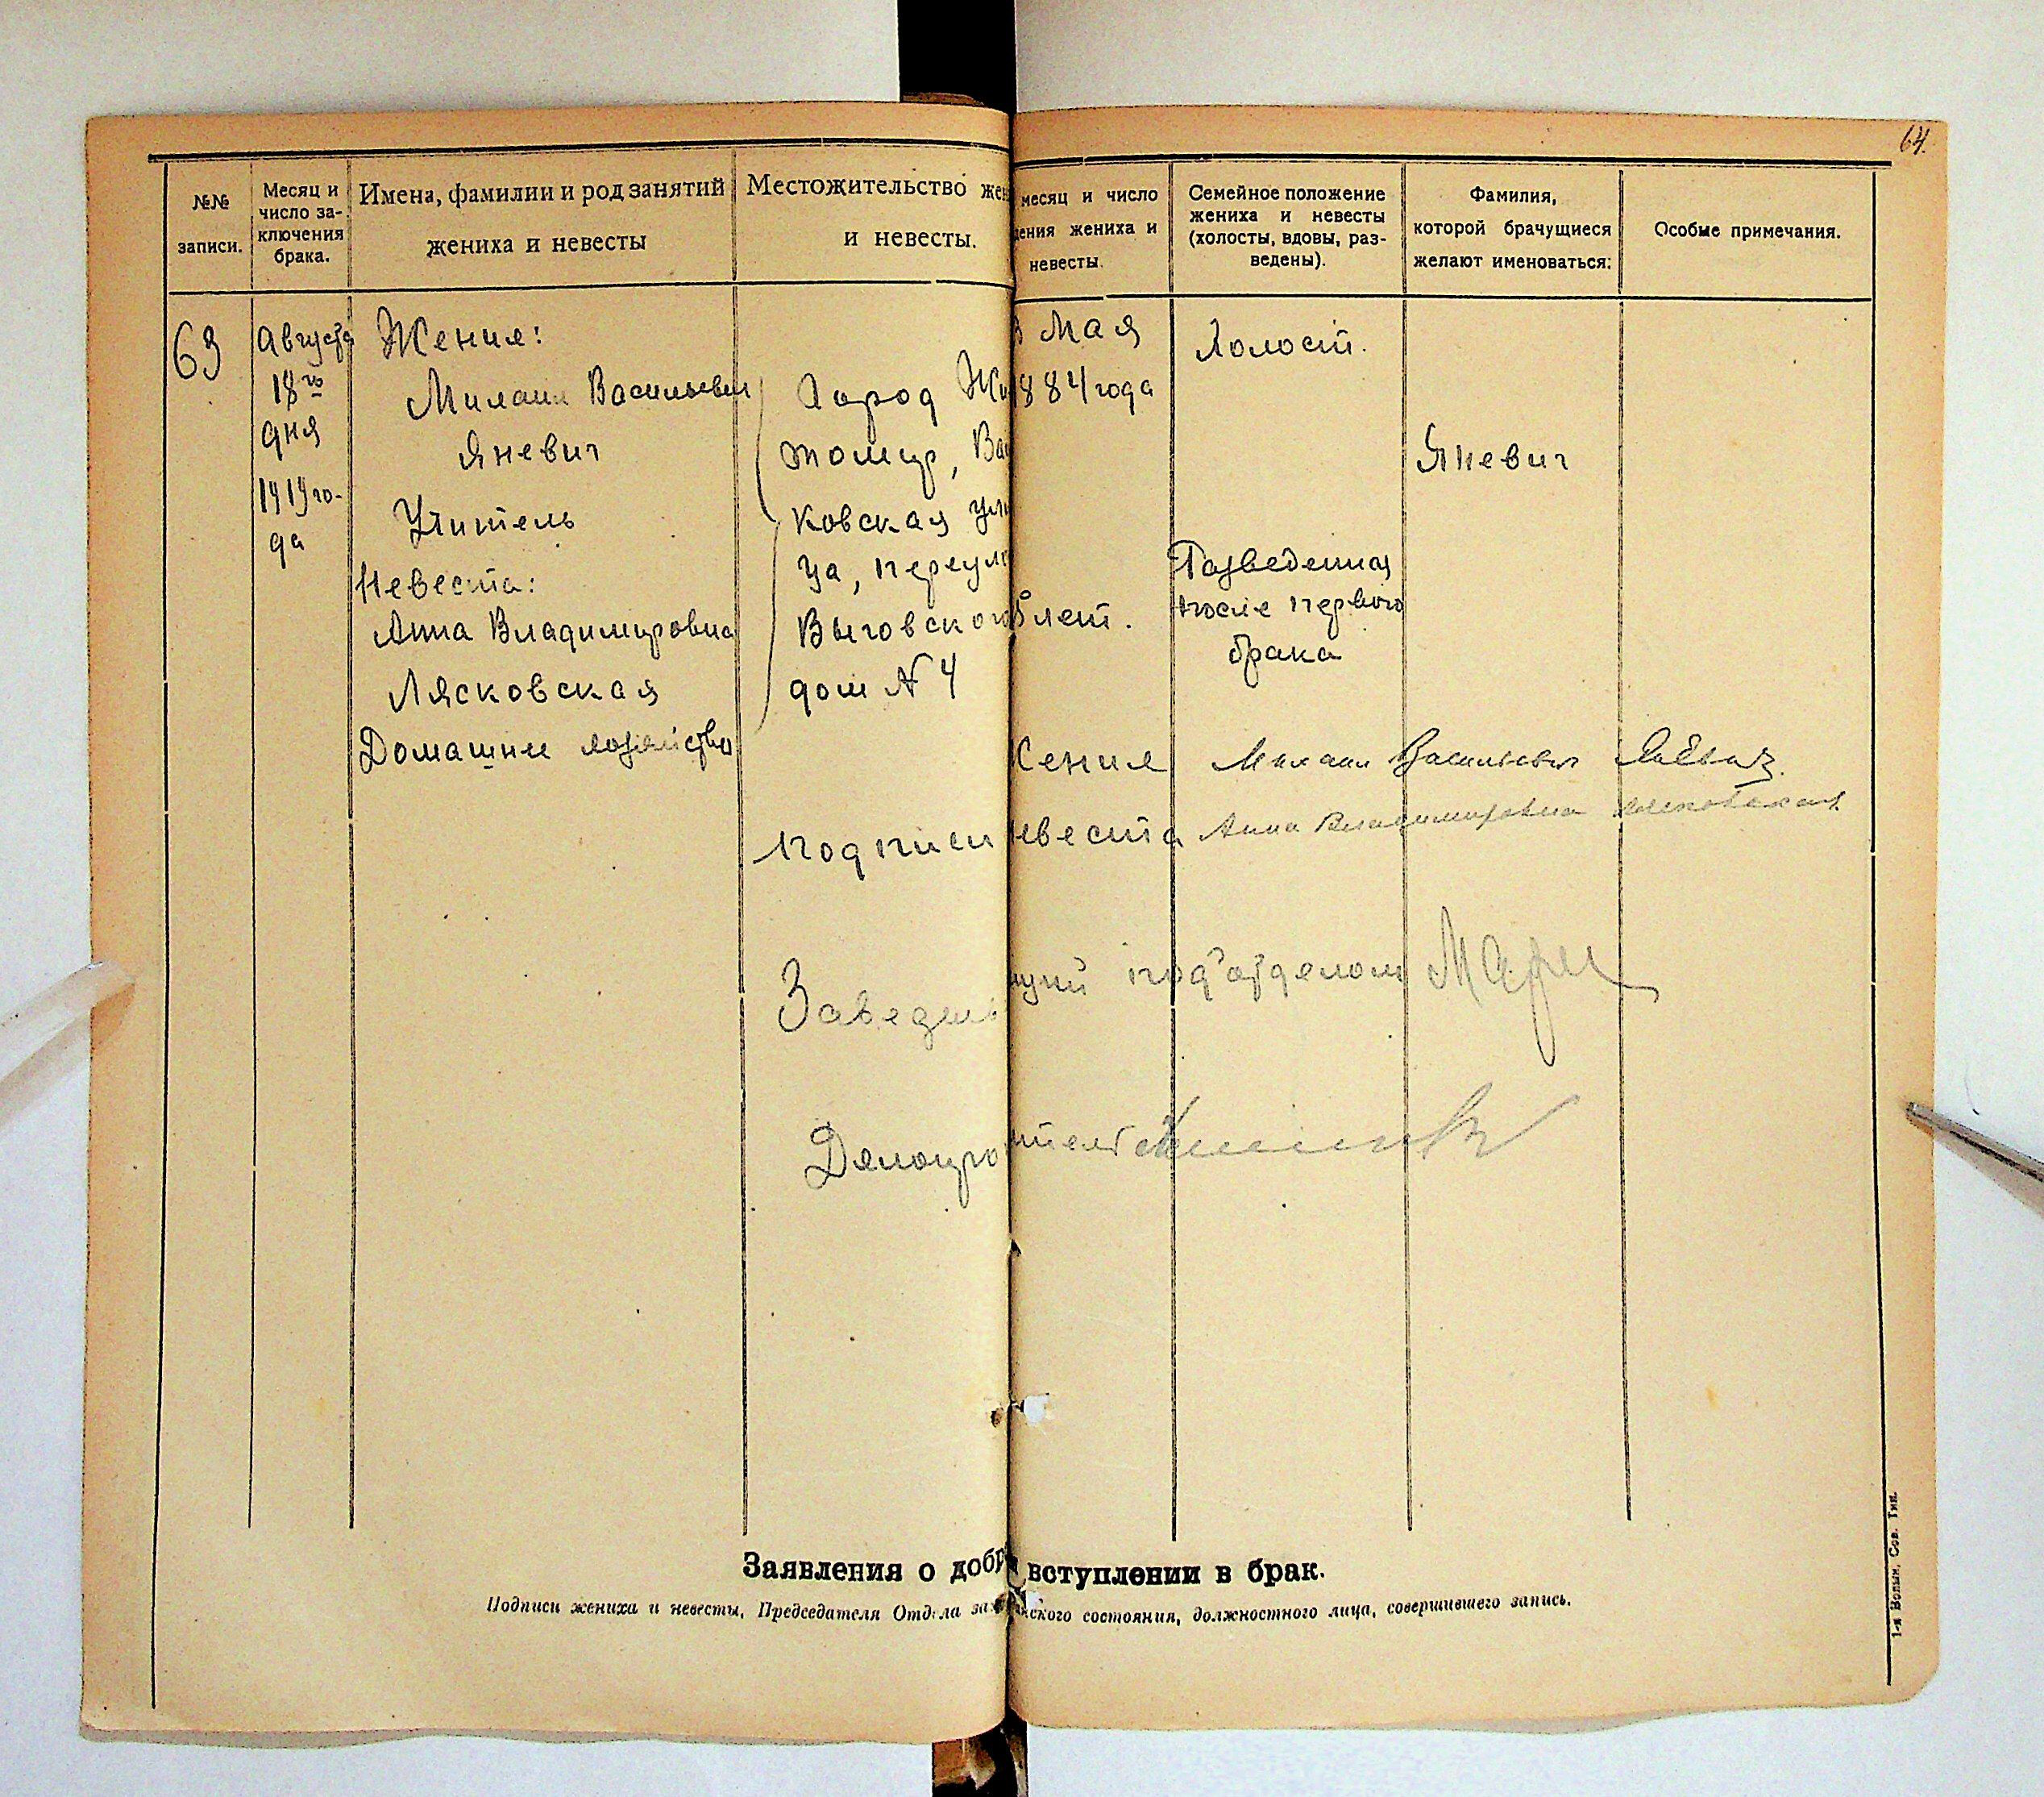 64.
№№
записи.
Месяц и
число за-
ключения
брака.
Имена, фамилии и род занятий
жениха и невесты
Местожительство жен
и невесты.
месяц и число
дения жениха и
невесты.
Семейное положение
жениха и невесты
(холосты, вдовы, раз-
ведены).
Фамилия,
которой брачущиеся
желают именоваться:
Особые примечания.
63
Августа
18го
дня
1919 го-
да
Жених:
Михаил Васильевич
Яневич
Учитель
Невеста:
Анна Владимировна
Лясковская
Домашнее хозяйство
Город Жи
томир, Ва
ковская ули
ца, переул
Выговского
дом № 4
3 Мая
1884 года
лет.
Холост.
Разведенная
после первого
брака
Яневич
Подписи
Жених Михаил Васильевич Яневич
Невеста Анна Владимировна Лясковская
Заведыв
ющий под'отделом
Делопро
итель
Заявления о добр вступлении в брак.
Подписи жениха и невесты, Председателя Отдела за нского состояния, должностного лица, совершившего запись.
1-я Волын. Сов. Тип.